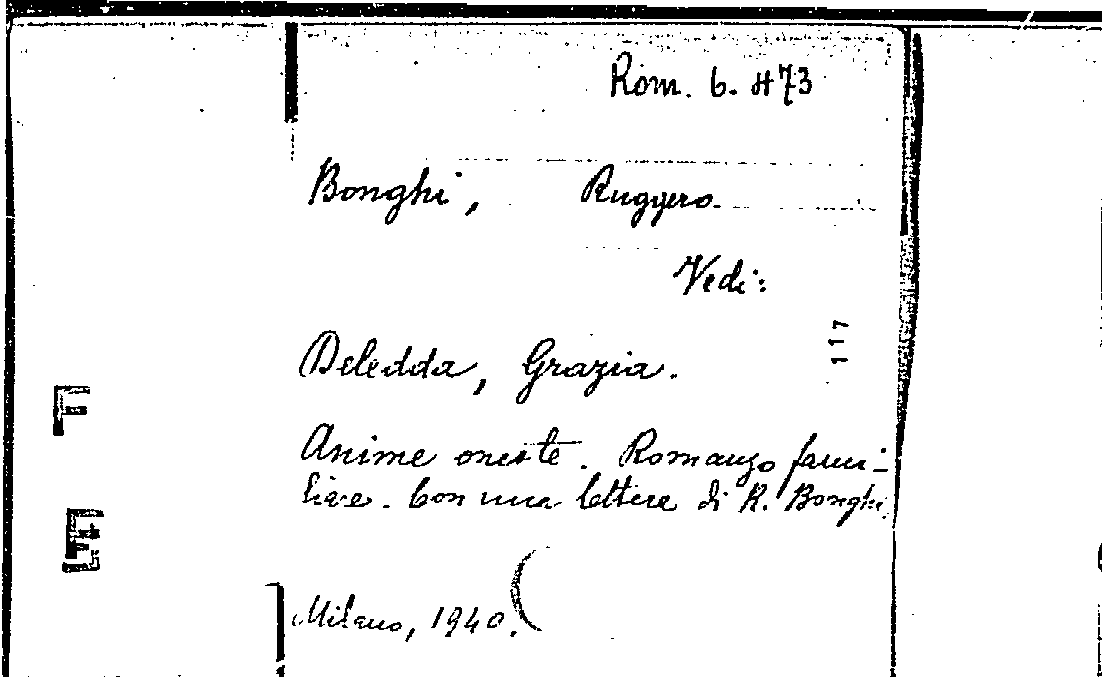 Rom. 6. 473
Bonghi, Ruggero.
Vedi:
117
Deledda, Grazia.
F
Anime oneste. Romanzo fami-
liare. Con una lettera di R. Bonghi.
E
Milano, 1940.